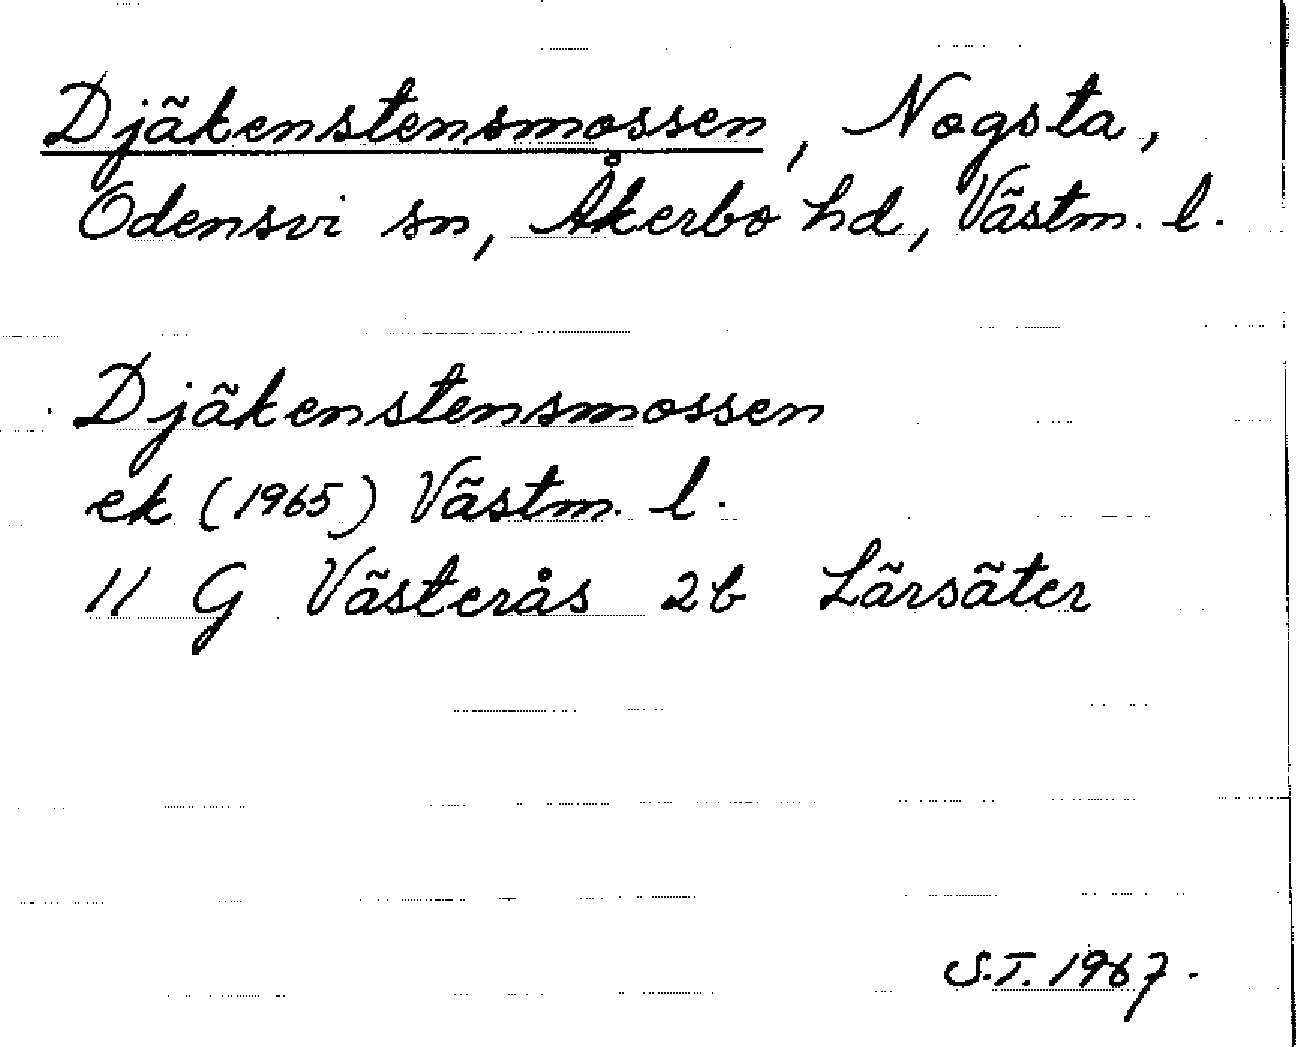 Djäkenstensmossen, Nogsta,
Odensvi sn, Åkerbo hd, Västm. l.
Djäkenstensmossen
ek (1965) Västm. l.
11 G Västerås 2b Lärsäter
S.T. 1967.